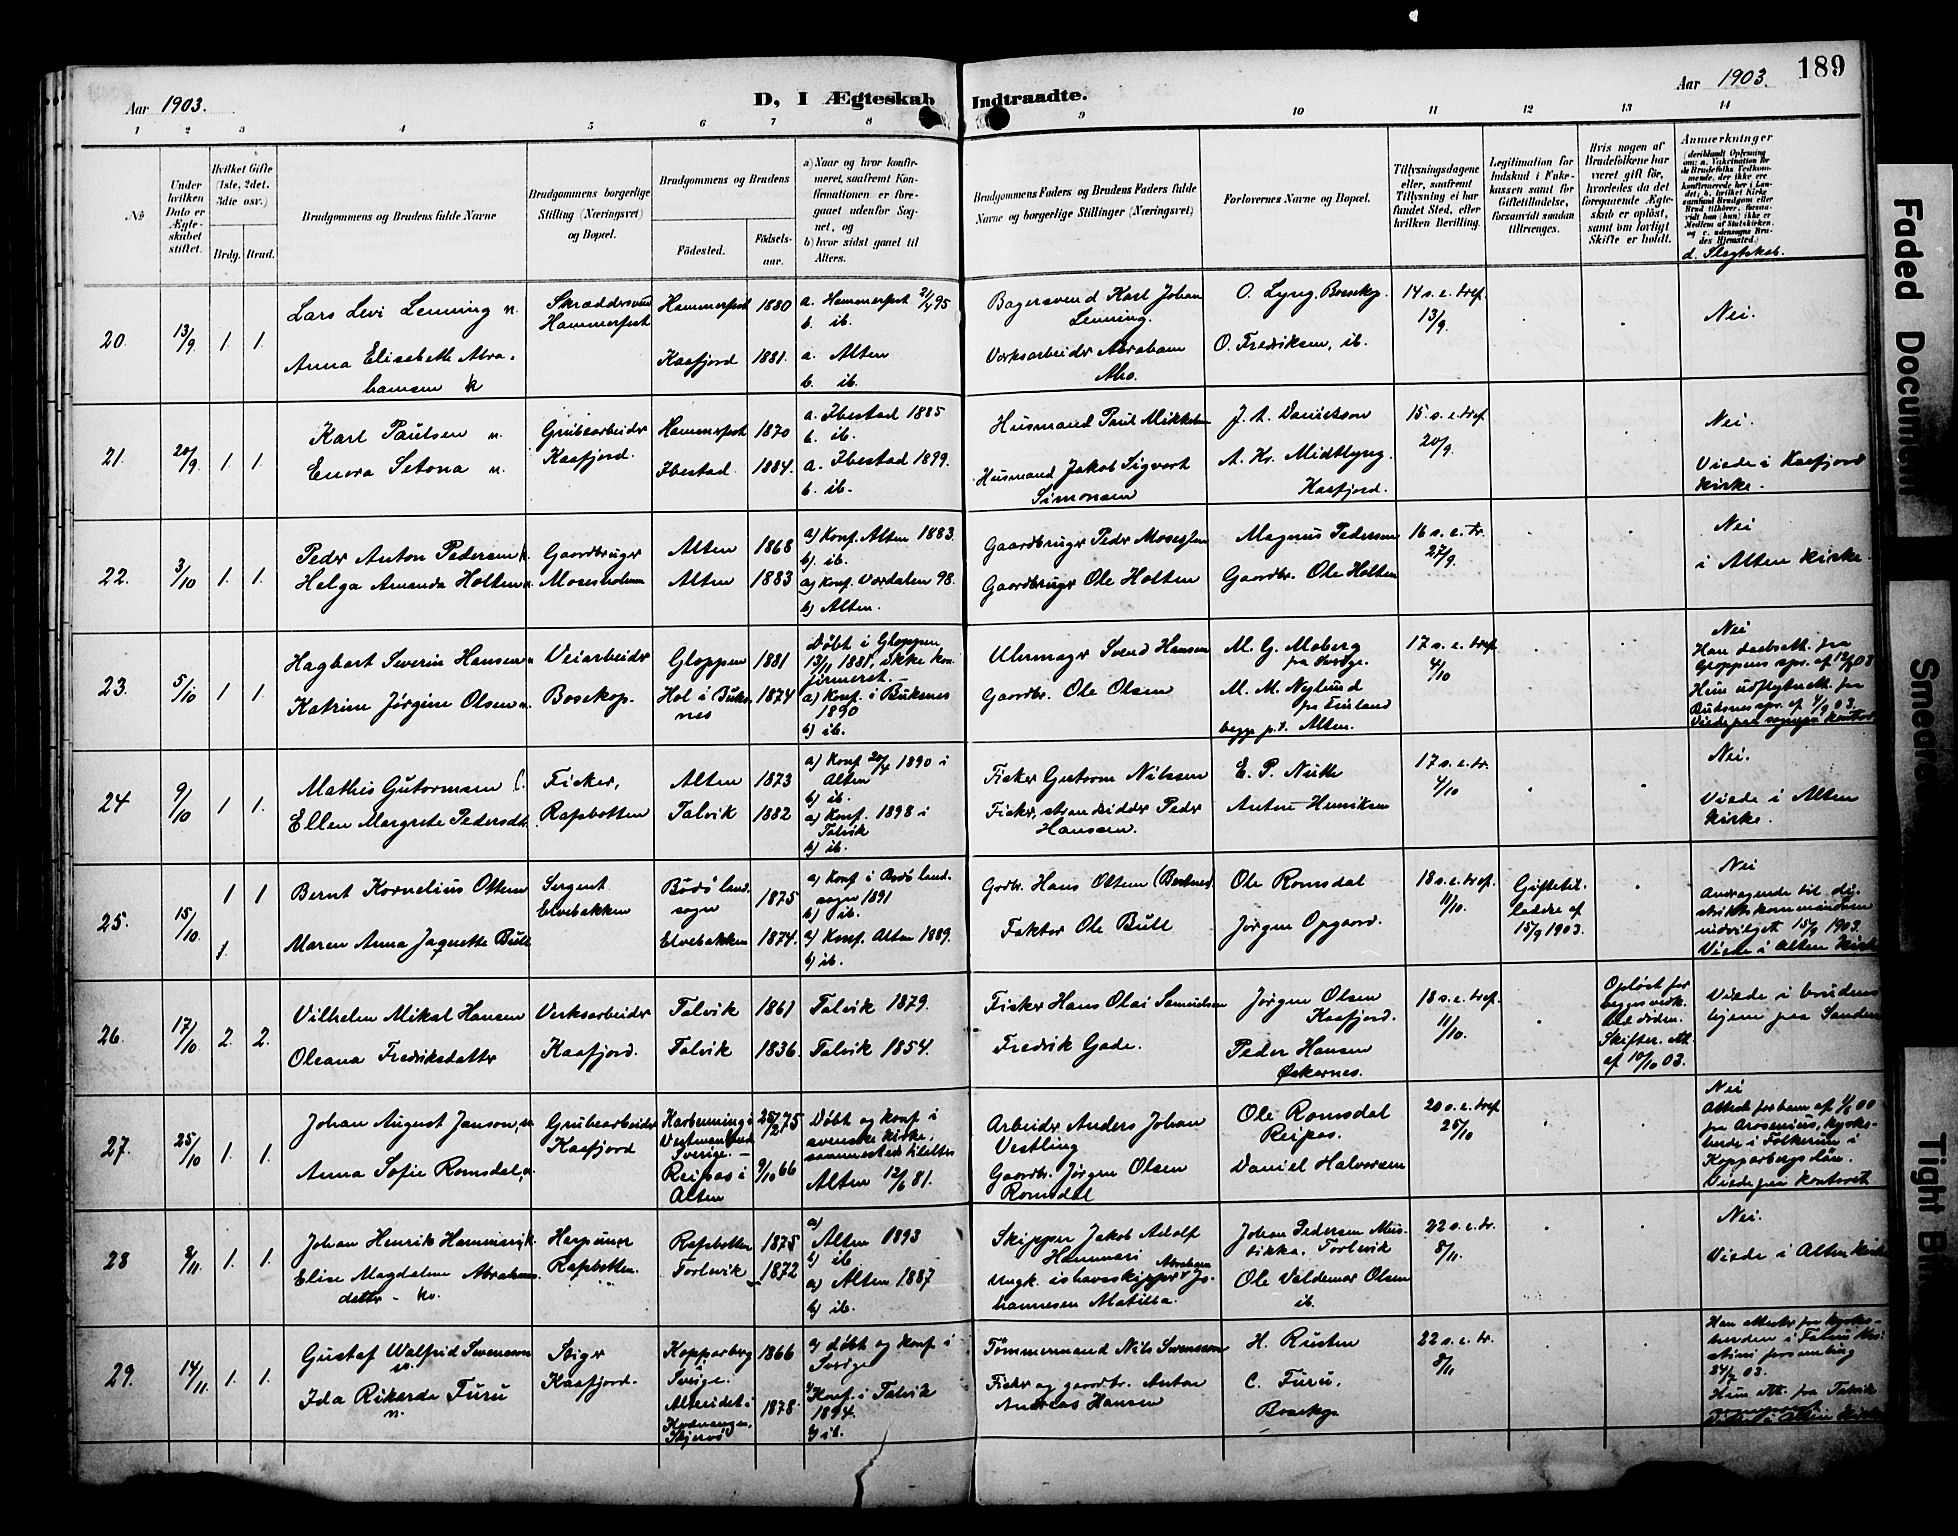 189
Aar 1903.
D, I Ægteskab Indtraadte.
Aar 1903.
1 2 3 4 5 6 7 8 9 10 11 12 13 14
No
Under hvilken Dato er Ægteskabet stiftet.
Hvilket Gifte (1ste, 2det, 3die osv.)
Brdg. Brud.
Brudgommens og Brudens fulde Navne
Brudgommens borgerlige Stilling (Næringsvei) og Bopæl.
Brudgommens og Brudens
Födested.
Födsels-aar.
a) Naar og hvor konfirmeret, saafremt Konfirmationen er foregaaet udenfor Sognet, og
b) hvor sidst gaaet til Alters.
Brudgommens Faders og Brudens Faders fulde Navne og borgerlige Stillinger (Næringsvei)
Forlovernes Navne og Bopæl.
Tillysningsdagene eller, saafremt Tillysning ei har fundet Sted, efter hvilken Bevilling.
Legitimation for Indskud i Enkekassen samt for Giftetilladelse, forsaavidt saadan tiltrænges.
Hvis nogen af Brudefolkene har været gift för, hvorledes da det foregaaende Ægteskab er oplöst, samt om lovligt Skifte er holdt.
Anmærkninger
d. Slegtskab.
20. 13/9 1. 1.
Lars Levi Lenning n.
Anna Elisabeth Abrahamsen k
Skræddersvend Hammerfest
Hammerfest 1880
Kaafjord 1881.
a. Hammerfest 95
b. ib.
a. Alten
b. ib.
Bagersvend Karl Johan Lenning.
Verksarbeider Abraham Aho.
O. Lyng, Bosekop.
O. Fredriksen, ib.
14 s. e. tref. 13/9.
Nei.
21. 20/9 1. 1.
Karl Paulsen n.
Enora Setona n.
Grubearbeider Kaafjord.
Hammerfest 1870
Ibestad. 1884.
a. Ibestad 1885
b. ib.
a. Ibestad 1899.
b. ib.
Husmand Paul Mikkelsen
Husmand Jakob Sigvart Simonsen
J. A. Danielsson
A. Kr. Midtlyng. Kaafjord.
15. s. e. tref 20/9.
Nei.
Viede i Kaafjord Kirke.
22. 3/10 1. 1.
Peder Anton Pedersen
Helga Amanda Holten n.
Gaardbruger Mosesholmen
Alten 1868
Alten 1883
a) Konf. Alten 1883.
b) ib.
a) Konf. Værdalen 98.
b) Alten.
Gaardbruger Peder Mosesen
Gaardbruger Ole Holten
Magnus Pedersen
Gaardbr. Ole Holten
16 s. e. tr. 27/9.
Nei
i Alten Kirke.
23. 5/10 1 1.
Hagbart Severin Hansen n.
Katrine Jørgine Olsen n.
Veiarbeider Bosekop.
Gloppen 1881
Hol i Buksnes 1874
Døbt i Gloppen 13/11 1881, ikke konfirmeret.
a) Konf. i Buksnes 1890
b) ib.
Uhrmager Svend Hansen
Gaardbr. Ole Olsen
M. G. Moberg fra Sverige.
M. M. Nylund fra Finland
begge p.t. Alten.
17 s. e. tref. 4/10
Nei
Han daabsatt. fra Gloppens spr. af
Hun udflytn.att. fra Buksnes spr. af 1/9 03.
Viede paa sognepr. kontor
24 9/10 1 1.
Mathis Gutormsen
Ellen Margrete Pedersdtr.
Fisker, Rafsbotten
Alten 1873
Talvik 1882
a) Konf. 1890 i Alten
b) ib.
a) Konf. 1898 i Talvik
b) ib.
Fisker Gutorm Nilssen
Fisker, strandsidder Peder Hansen.
E. P. Nutte
Anton Henriksen
17 s. e. tr. 4/10
Nei.
Viede i Alten Kirke.
25. 15/10. 1 1
Bernt Kornelius Ottem
Maren Anna Jaquette Bull
Sergent Elvebakken
Bodö landsogn 1875
Elvebakken 1874.
a) Konf. i Bodö landsogn 1891
b) ib.
a) Konf. Alten 1889.
b) ib.
Grdbr. Hans Olsen
Faktor Ole Bull
Ole Romsdal
Jørgen Opgaard.
18 s. e. tref. 11/10.
Giftetilladelse af 15/9 1903.
Nei
Andragende til distriktskommandoen indvilget 15/9 1903.
Viede i Alten Kirke
26. 17/10 2. 2.
Vilhelm Mikal Hansen
Oleana Fredriksdatter
Verksarbeider Kaafjord.
Talvik 1861
Talvik 1836.
Talvik 1879.
Talvik 1854.
Fisker Hans Olai Samuelsen
Fredrik Gade.
Jørgen Olsen Kaafjord.
Peder Hansen Öskarnes.
18 s. e. tref. 11/10.
Opløst for begges vedk. ved døden. Skifter. att. af 10/10 03.
Viede i brudens hjem paa Sanden
27. 25/10 1. 1.
Johan August Janson, n.
Anna Sofie Romsdal, n.
Grubearbeider Kaafjord
Karbenning i Vestmanland Sverige. 25/2 75
Reipas i Alten 9/10 66
Døbt og konf i svenske kirke, sammesteds tilalters
Alten 12/6 81.
Arbeider Anders Johan Vestling
Gaardbr. Jørgen Olsen Romsdal
Ole Romsdal Reipas.
Daniel Halversen
20 s. e. tref 25/10
Nei
Attest for ham af 00 fra Arosenius, kyrkoherde i Folkerna i Kopparbergs län.
Viede paa kontoret
28 8/11. 1. 1.
Johan Henrik Hammari, k
Elise Magdalene Abrahamsdatter - kv.
Harpuner Rafsbotten.
Rafsbotten 1875
Torlevik 1872
a) Alten 1893
b) ib
a) Alten 1887
b) ib.
Skipper Jakob Adolf Hammari
Ungk. ishavsskipper Abraham Johannesen Matilla.
Johan Pedersen Torlevik
Ole Valdemar Olsen ib.
22 s. e. tr. 8/11.
Nei.
Viede i Alten Kirke
29. 14/11. 1. 1.
Gustaf Walfrid Svensson n.
Ida Rikarda Furu n.
Stiger Kaafjord.
Kopparberg i Sverige. 1866
Alteidet i Kvænangen, Skjervö 1878.
a) döbt og konf i Sverige
a) Konf. i Talvik 1894.
b) ib.
Tömmermand Nils Svensson
Fisker og gaardbr. Anton Andreas Hansen
H. Rusten
C. Furu, Bosekop
22 s. e. tr. 8/11
Han attester fra kyrkoherden i Falun Kristine forsamling 03.
Hun att. fra Talvik
Viede i Alten Kirke
Faded Document
Smeared
Tight Bin